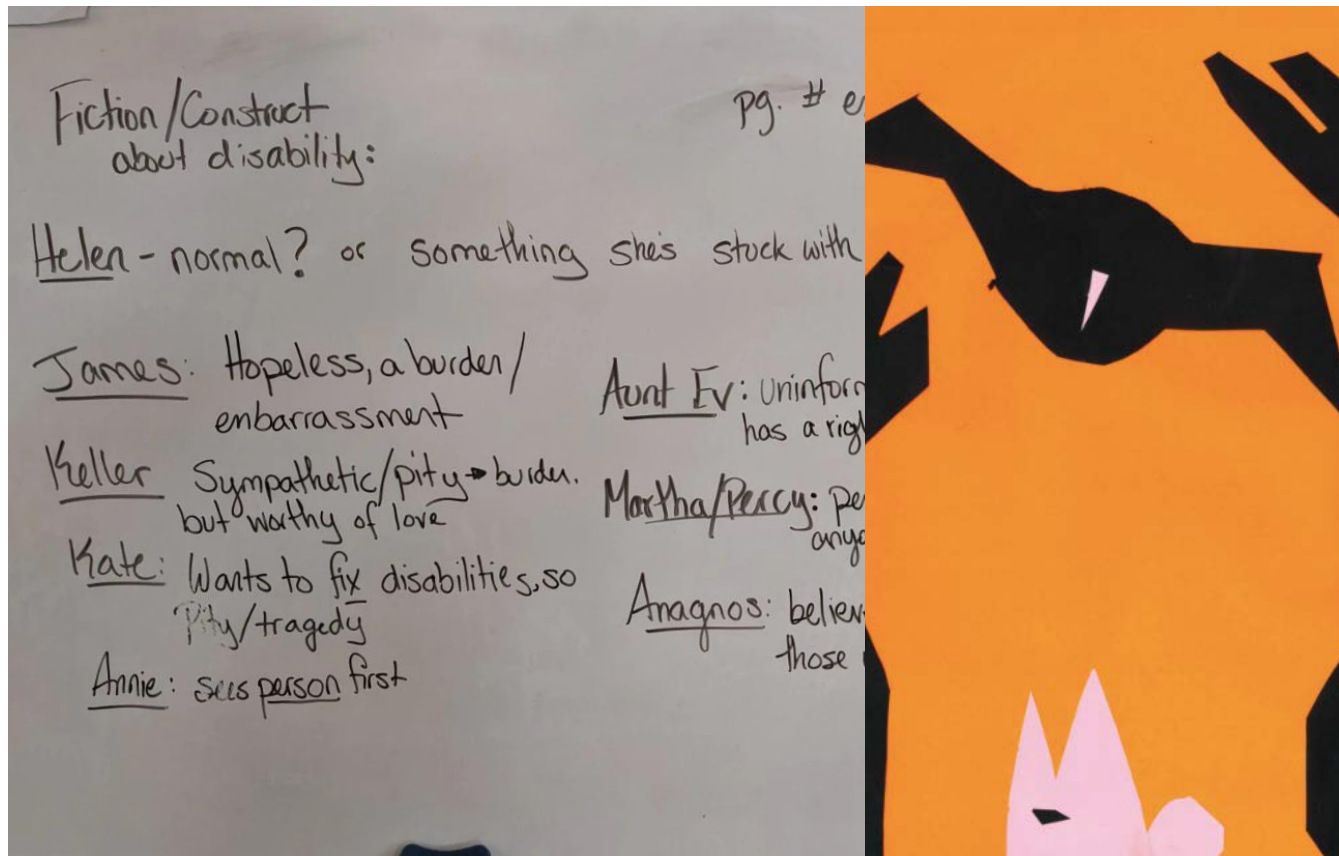 Fiction/Construct
about disability:
pg. #
Helen - normal? or something she's stuck with
James: Hopeless, a burden/
embarrassment
Keller Sympathetic/pity→burden.
but worthy of love
Kate: Wants to fix disabilities, so
Pity/tragedy
Annie: sees person first
Aunt Ev:
has a
Martha/Percy:
Anagnos:
those